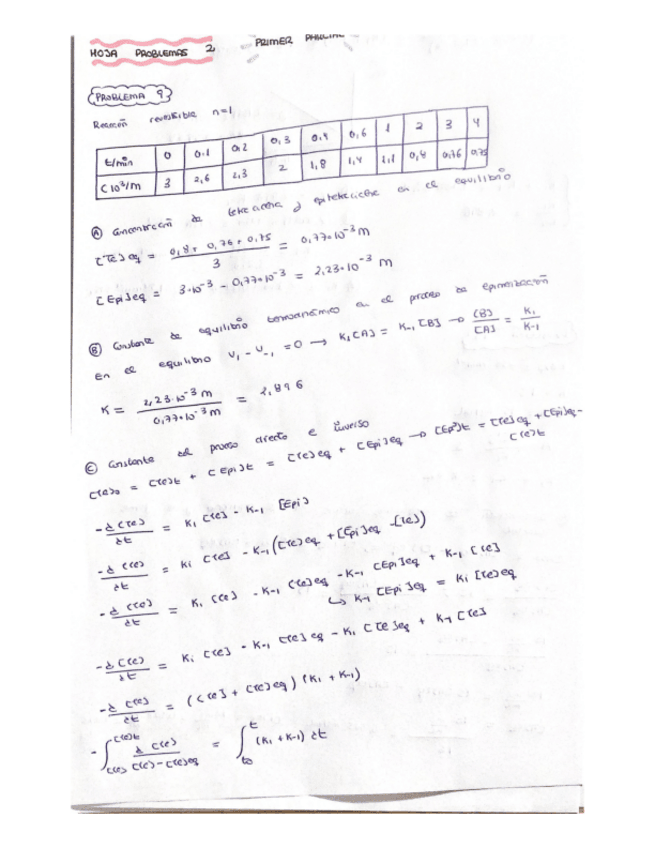 HOJA PROBLEMAS 2 PRIMER PARCIAL
PROBLEMA 9
Reacción reversible n=1
t/min 0 0.1 0,2 0,3 0,4 0,6 1 2 3 4
C 10³/M 3 2,6 2,3 2 1,8 1,4 1,1 0,8 0,76 0,75
A concentración de tetraciclina y epitetraciclina en el equilibrio
[Te]eq = (0,8 + 0,76 + 0,75)/3 = 0,77·10⁻³ M
[Epi]eq = 3·10⁻³ - 0,77·10⁻³ = 2,23·10⁻³ M
B Constante de equilibrio termodinámico en el proceso de epimerización
En el equilibrio V₁ - V₋₁ = 0 → K₁[A] = K₋₁[B] → [B]/[A] = K₁/K₋₁
K = 2,23·10⁻³ M / 0,77·10⁻³ M = 2,896
C Constante del proceso directo e inverso
[Te]₀ = [Te]t + [Epi]t = [Te]eq + [Epi]eq → [Epi]t = [Te]eq + [Epi]eq -
[Te]t
-d[Te]/dt = K₁[Te] - K₋₁ [Epi]
-d[Te]/dt = K₁ [Te] - K₋₁([Te]eq + [Epi]eq - [Te])
-d[Te]/dt = K₁ [Te] - K₋₁ [Te]eq - K₋₁ [Epi]eq + K₋₁ [Te]
↳ K₋₁ [Epi]eq = K₁ [Te]eq
-d[Te]/dt = K₁ [Te] - K₋₁ [Te]eq - K₁ [Te]eq + K₋₁ [Te]
-d[Te]/dt = ([Te] + [Te]eq)(K₁ + K₋₁)
-∫[Te]₀^[Te]t d[Te]/([Te] - [Te]eq) = ∫t₀^t (K₁ + K₋₁) dt